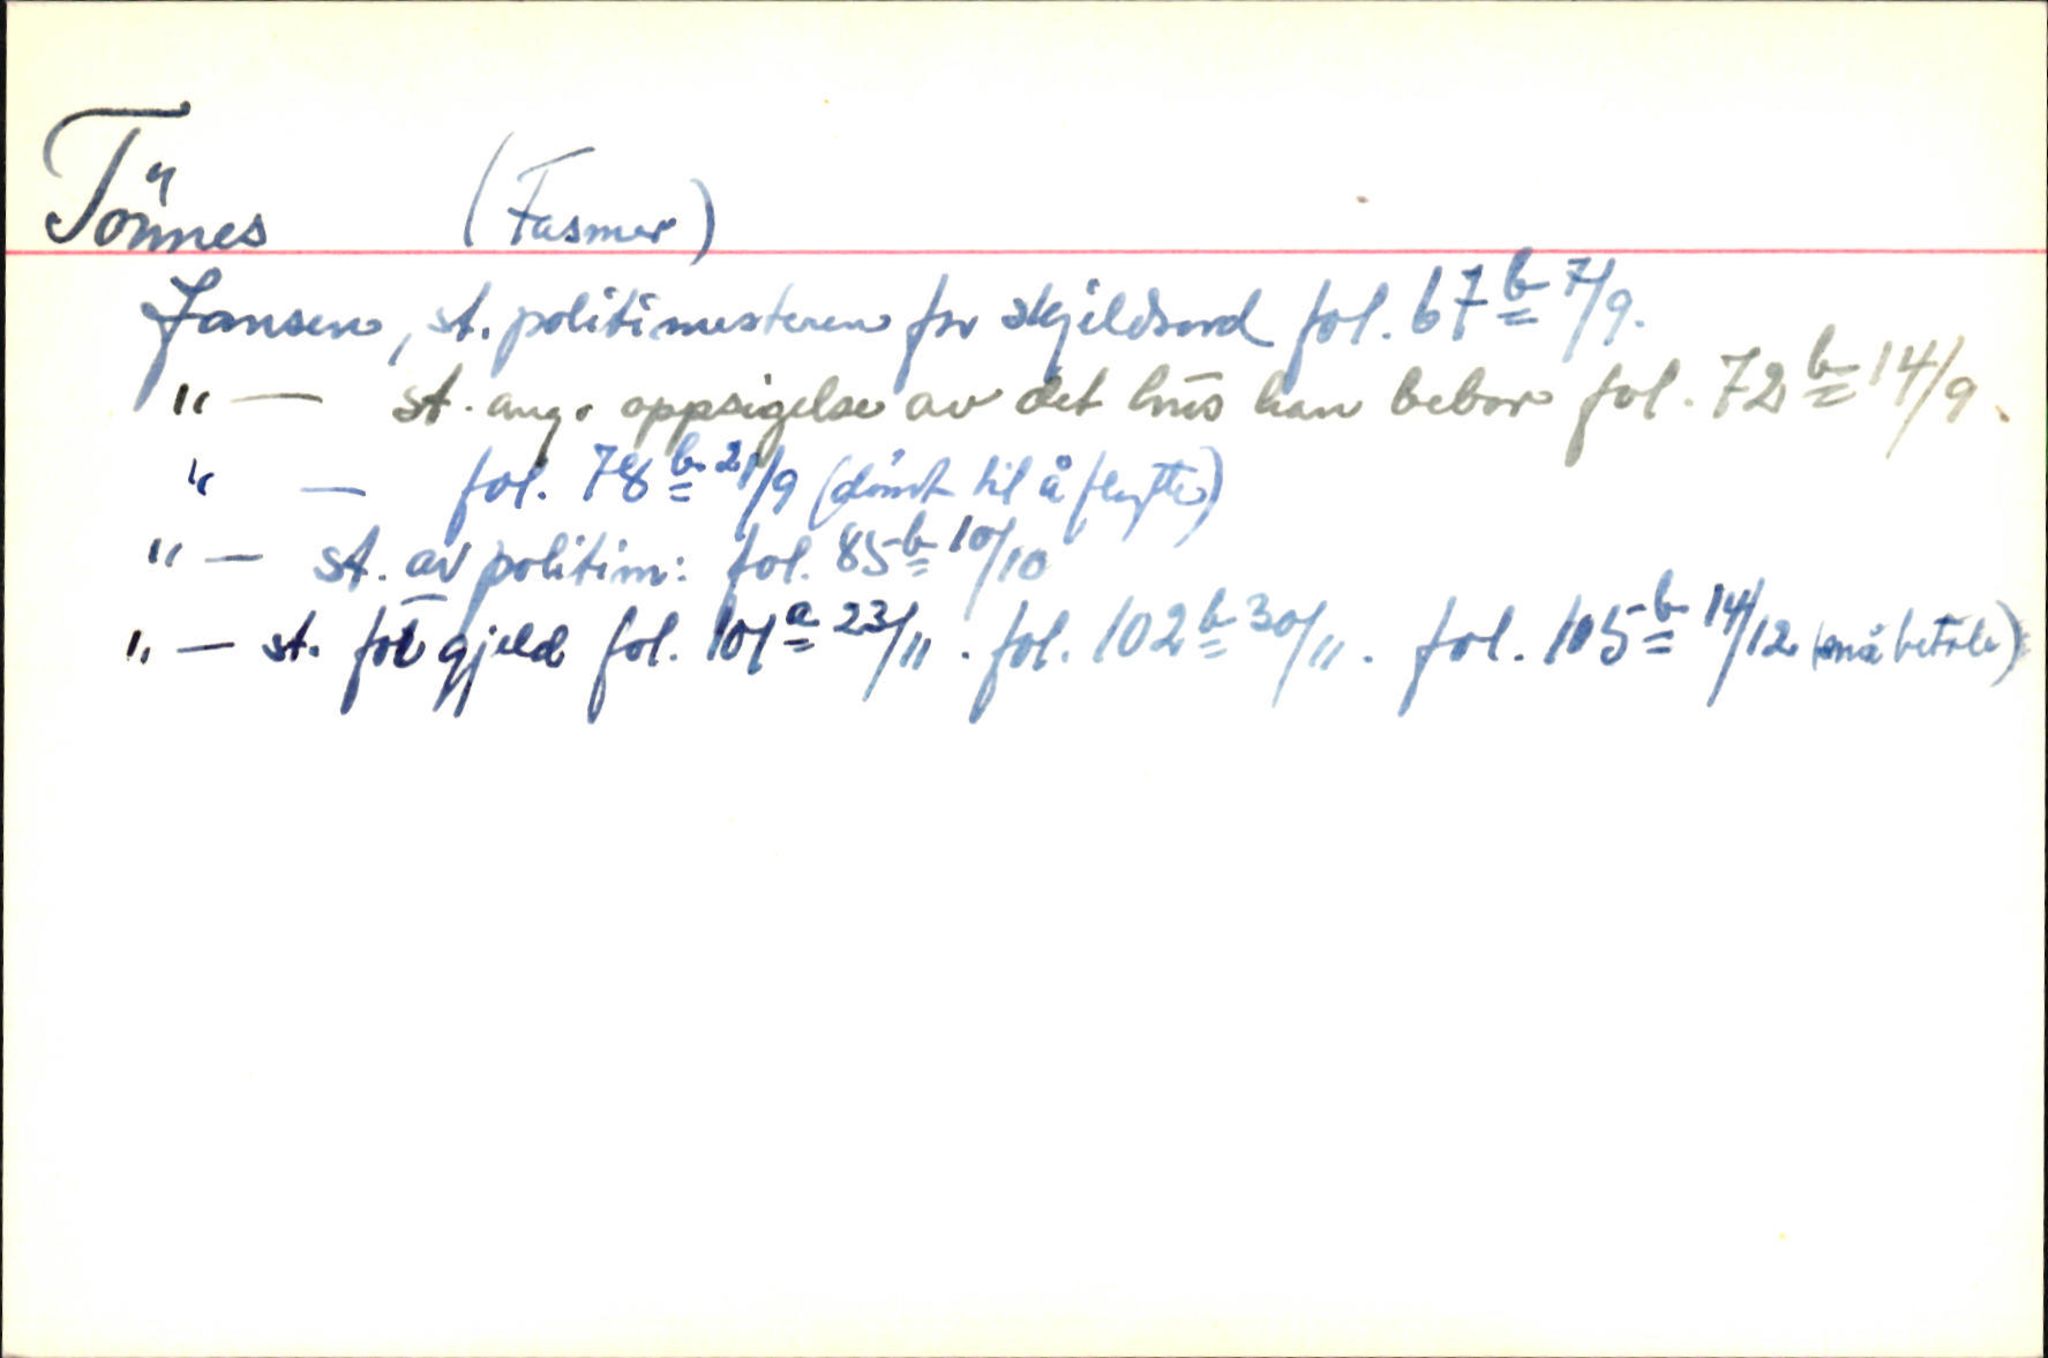 Tönnes (Fasmer)
Jansen, st. politimesteren for skjeldsord fol. 67 b 7/9.
" — st. ang. oppsigelse av det hus han bebor fol. 72 b 14/9.
" — fol. 78 b 21/9 (dömt til å flytte)
" — st. av politim: fol. 85 b 10/10
" — st. for gjeld fol. 101 a 23/11. fol. 102 b 30/11. fol. 105 b 14/12 (må betale)